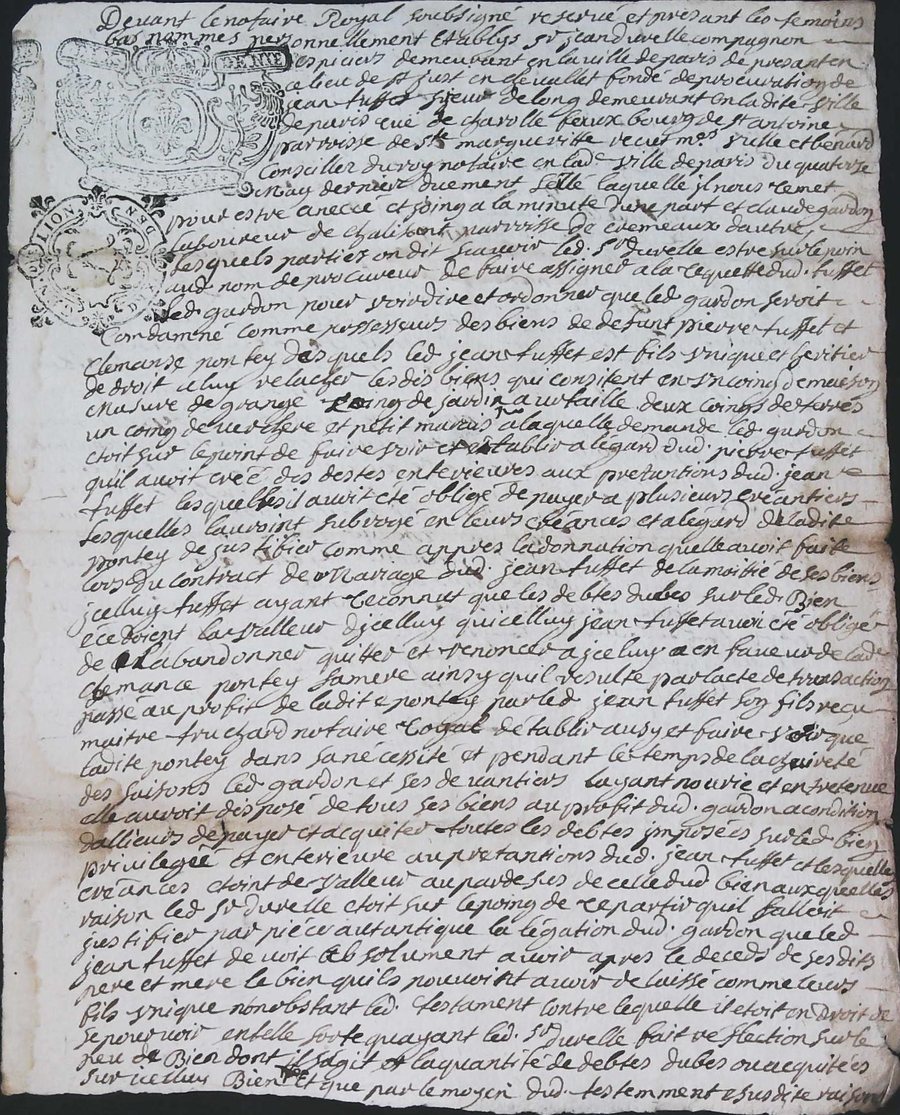 Devant le notaire Royal soubsigné reservé et presant les temoins
bas nommes personnellement Etablys Sr jean durelle compagnon
espiciers demeurant en la ville de paris de presant en
ce lieu de st just en chevallet fondé de procuration de
jean tuffet sieur de long demeurant en la dite ville
de paris rue de charolle feauxbourg de st antoine
parroisse de ste margueritte receu mes ville et benard
Conseiller du roy notaire en lade ville de paris du quatorze
may dernier duement sellé laquelle jl nous remet
pour estre anecée et joing a la minute d'une part et claude gardon
laboureur de chalibont parroisse de cremeaux d'autre
Lesquels parties ont dit scavoir led. Sr durelle estre sur le poin
aud nom de procureur de faire assigner a la requette dud. tuffet
led gardon pour voir dire et ordonner que led gardon seroit
Condamné comme possesseurs des biens de defunt pierre tuffet et
Clemanse pontey desquels led jean tuffet est fils vnique et heritier
de droit a luy relacher lesdis biens qui consitent en vn coing de maison
masure de grange coing de jardin a vn taille deux coings de terres
un coing de verchere et petit marais a laquelle demande led gardon
etoit sur le point de faire voir et etablir a legard dud. pierre tuffet
quil avoit creé des destes enterieures aux pretantions dud. jean
tuffet lesquelles il avoit eté obligé de payer a plusieurs creantiers
Lesquelles lauroint subrogé en leurs creances et a légard de ladite
pontey de justifier comme appres la donnation quelle avoit faite
lors du contract de Mariage dud. jean tuffet de la moitié de ses biens
jcelluy tuffet ayant reconnut que les debtes dubes sur led. Bien
ecedoient la valleur djcelluy quicelluy jean tuffet avoit eté obligé
de labandonner quiter et renoncer a jceluy en faveur de lade
Clemance pontey samere ainsy quil resulte par lacte de transaction
passé au profit de ladite pontey par led jean tuffet son fils receu
maitre truchard notaire royal détablir ausy et faire voir que
ladite pontey dans sa nécessité et pendant le temps de la dureté
des saisons led gardon et ses devantiers layant nourie et entretenue
elle auroit disposé de tous ses biens au profit dud. gardon a condition
dallieurs de payer et acquiter toutes les debtes jmposées sur led bien
privilegeé et enterieure au pretantions dud. jean tuffet et lesquelle
creances etoint de valleur au pardesus de celle dud bien aux quelles
raison led Sr durelle etoit sur le poing de repartir quil falloit
justifier par piece autantique la légation dud. gardon que led
jean tuffet devoit absolument avoir apres le deceds de ses dits
pere et mere le bien quils pouvoint avoir delaissé comme leurs
fils vnique nonobstant led. testament contre lequelle il etoit en droit de
se pourvoir en telle sorte quayant led. Sr durelle fait reflection sur le
peu de Bien dont il sagit et la quantité de debtes dubes ou acquitées
sur icelluy Bien et que par le moyen dud testemment et susdite raison